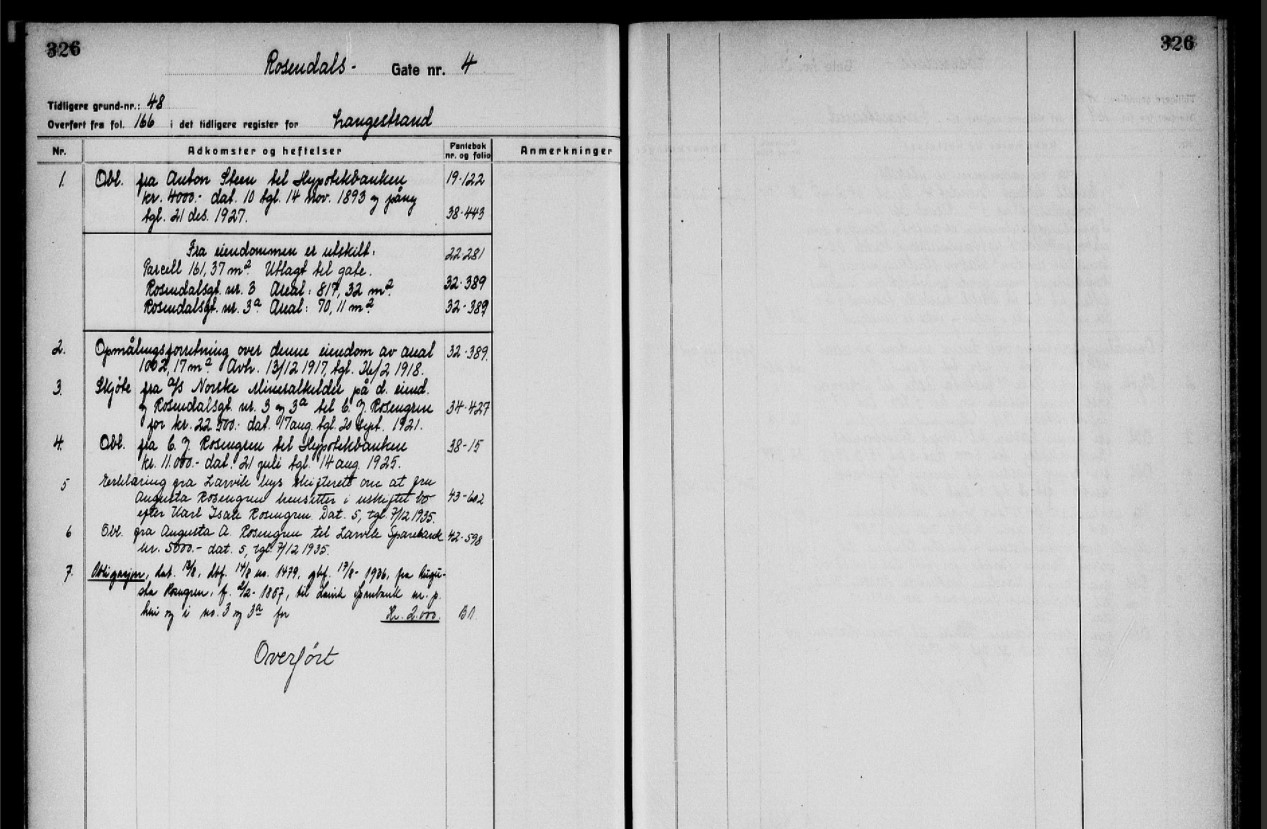 326
326
Rosendals- Gate nr. 4
Tidligere grund-nr.: 48
Overført fra fol. 166 i det tidligere register for Langestrand
Nr. Adkomster og heftelser Pantebok nr. og folio Anmerkninger
1. Obl. fra Anton Steen til Hypotekbanken 19-122
kr. 4000.- dat. 10 tgl. 14 nov. 1893 og påny
tgl. 21 des. 1927. 38-443
Fra eiendommen er utskilt: 22-281
Parcell 161,37 m². Utlagt til gate.
Rosendalsgt. nr. 3 Areal: 817,32 m². 32-389
Rosendalsgt. nr. 3a Areal: 70,11 m². 32-389
2. Opmålingsforretning over denne eiendom av areal 32-389.
1002,17 m². Avh. 13/12 1917, tgl. /2 1918.
3. Skjøte fra a/s Norske Mineralkilder på d. eiend.
og Rosendalsgt. nr. 3 og 3a til C. J. Rosengren 34-427
for kr. 22 500.- dat. 17 aug. tgl. sept. 1921.
4. Obl. fra C. J. Rosengren til Hypotekbanken 38-15
kr. 11.000.- dat. 21 juli tgl. 14 aug. 1925.
5 Erklæring fra Larvik bys skifterett om at fru
Augusta Rosengren hensitter i uskiftet bo 43-602
efter Karl Isak Rosengren. Dat. 5, tgl. 7/12 1935.
6 Obl. fra Augusta A. Rosengren til Larvik Sparebank 42-598
kr. 5000.- dat. 5, tgl. 7/12 1935.
7. Obligasjon, dat. /8, dbf. 14/8 nr. 1479, gbf. 19/8- 1936, fra Augu-
sta Rosengren, f. /2- 1867, til Larvik Sparebank m. p.
heri og i nr. 3 og 3a for Kr. 2.000. B1.
Overført